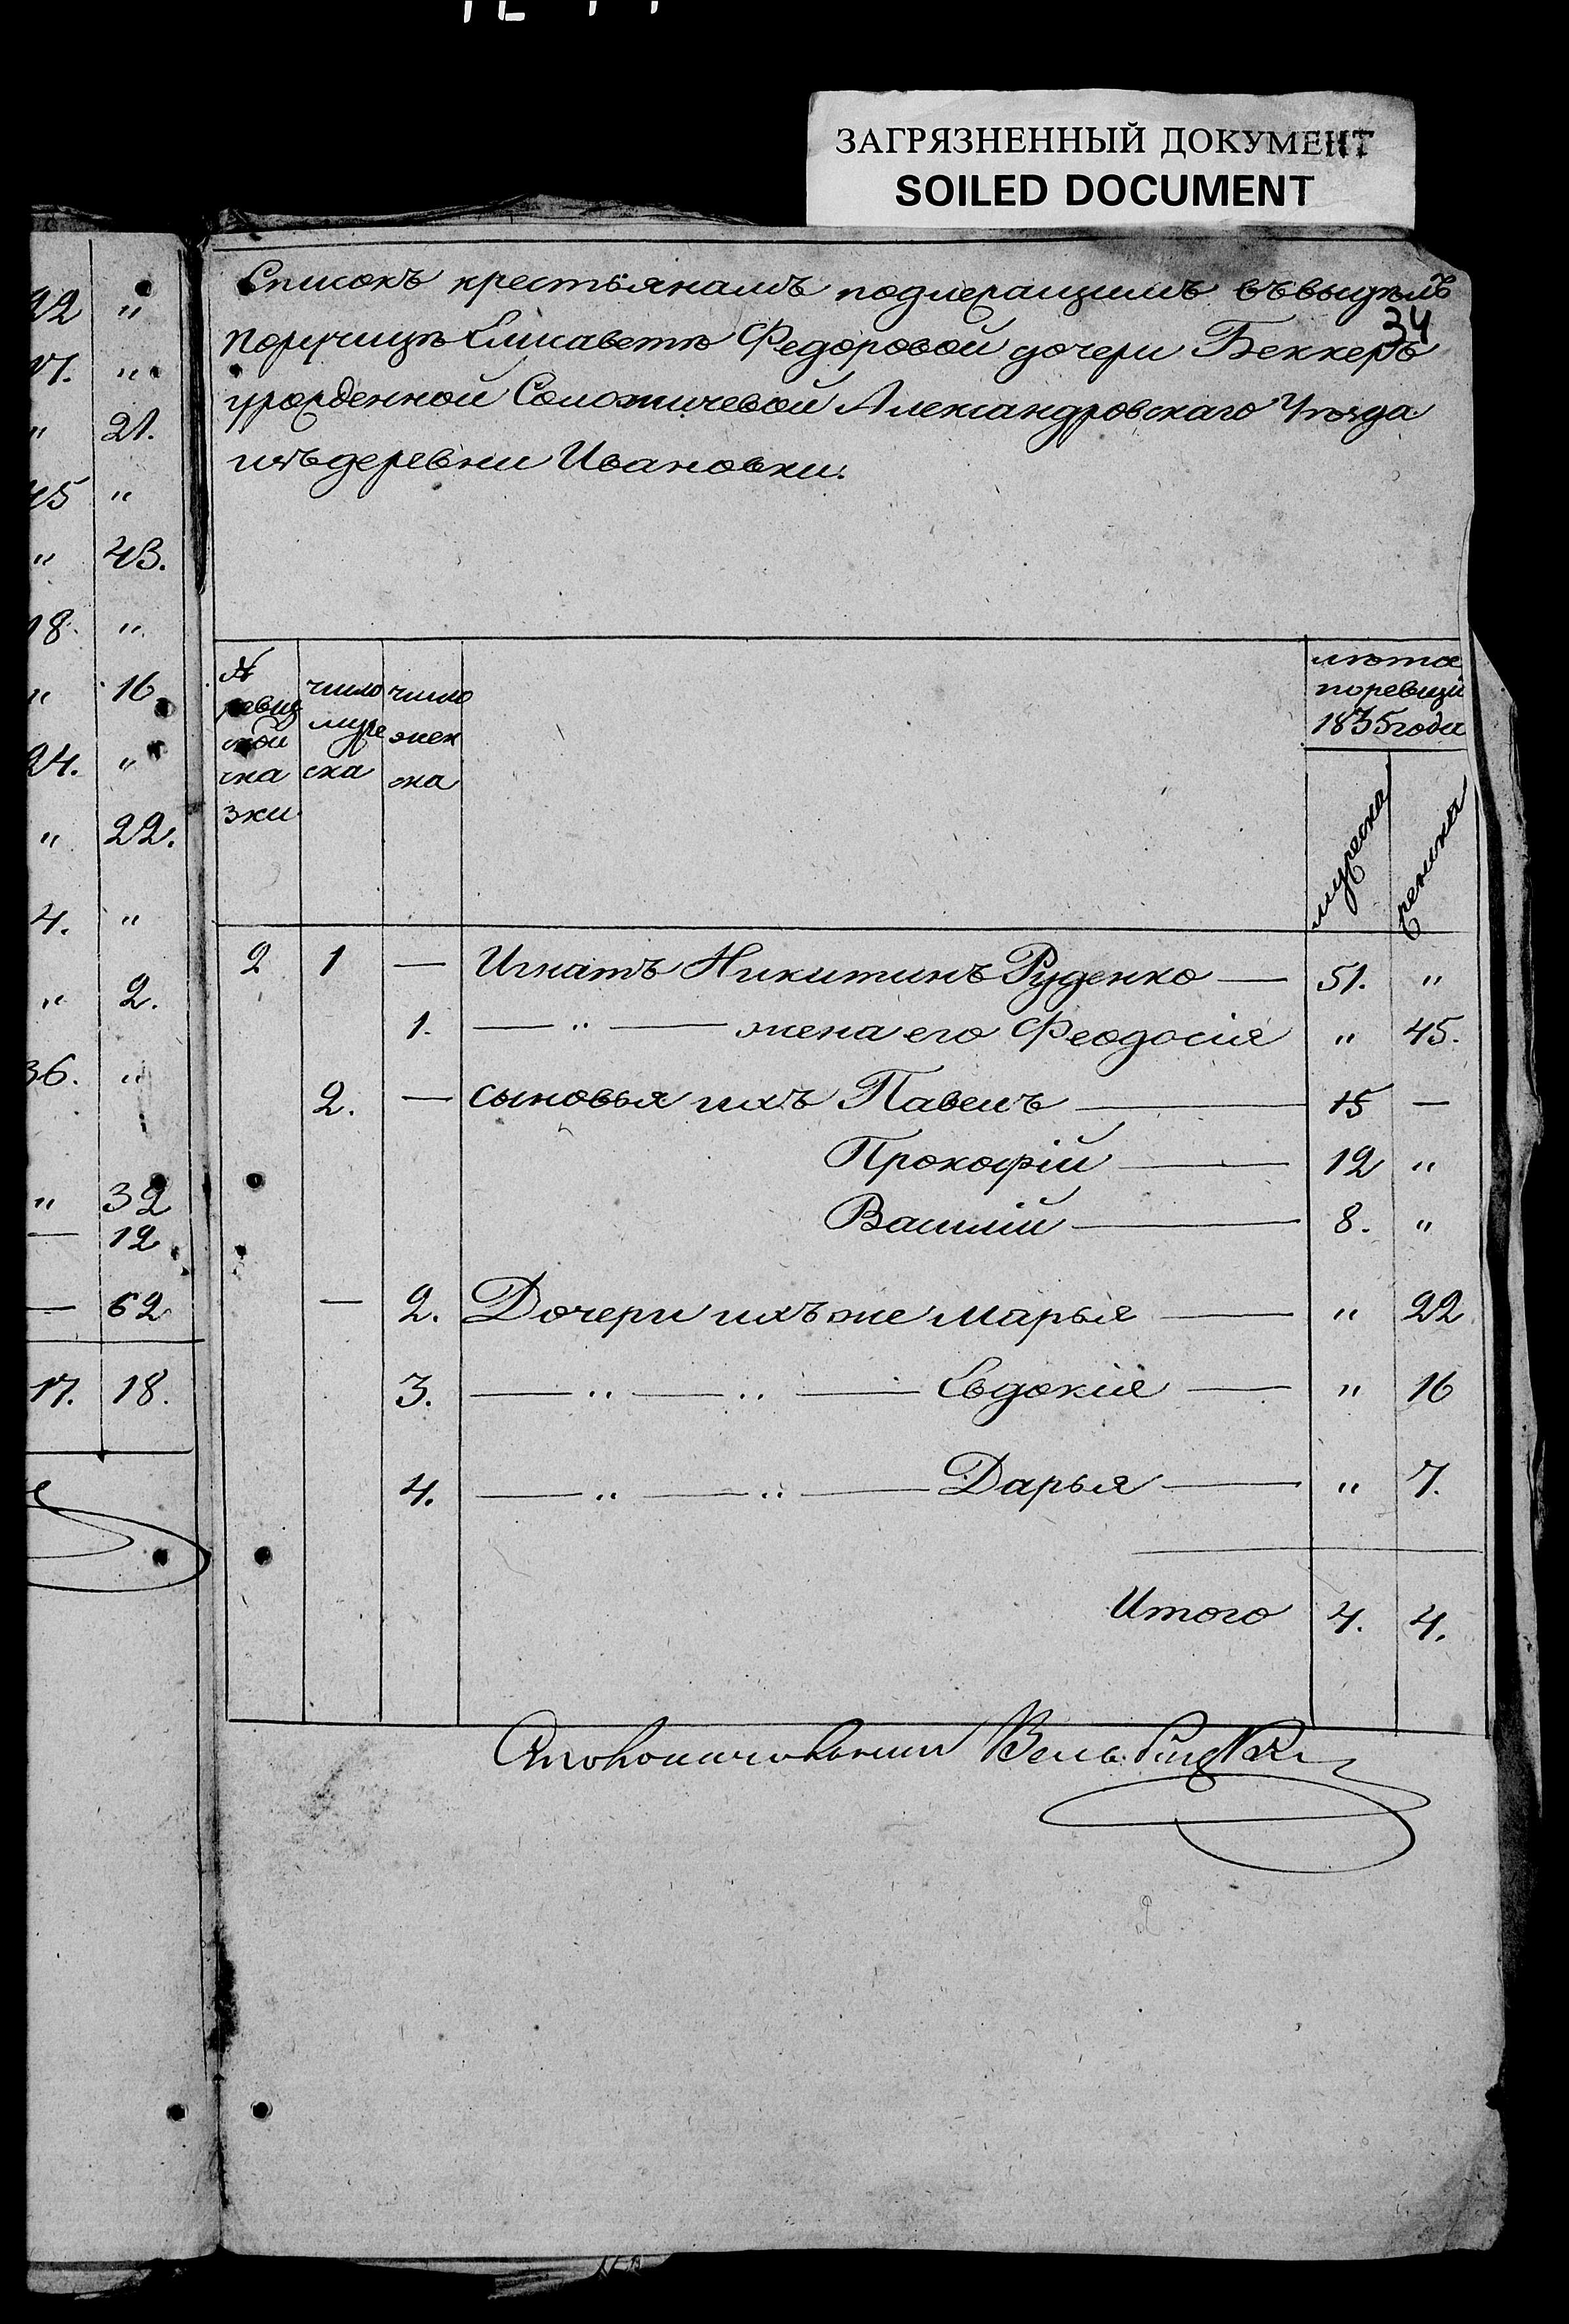 ЗАГРЯЗНЕННЫЙ ДОКУМЕНТ
SOILED DOCUMENT
Списокъ крестьянамъ подлежащимъ въ выделъ
34
Поручицѣ Елисаветѣ Федоровой дочери Беккеръ
урожденной Александровскаго Уѣзда
изъ деревни Ивановки.
22 "
17. "
" 21.
45 "
" 43.
18. "
" 16
24. "
" 22.
4. "
" 2.
36. "
" 32
— 12
— 62
17. 18.
№ ревизской сказки
число мужеска
число женска
лѣта по ревизіи 1835 года
мужеска
женска
2 1 — Игнатъ Никитинъ Руденко — 51. "
1. — " — жена его Феодосія " 45.
2. — сыновья ихъ Павелъ — 15 —
Прокофій — 12 "
Василій — 8. "
— 2. Дочери ихъ же Марья — " 22
3. — " — " — Евдокія — " 16
4. — " — " — Дарья — " 7.
Итого 4. 4.